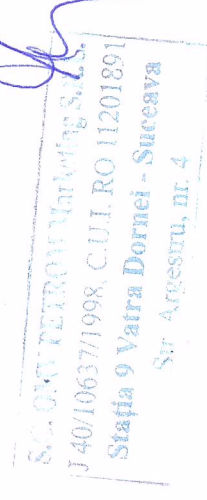 S.C. OMV PETROM Marketing S.R.L.
J 40/10637/1998, C.U.I. RO 11201891
Stația 9 Vatra Dornei - Suceava
Str. Argeșului, nr. 4